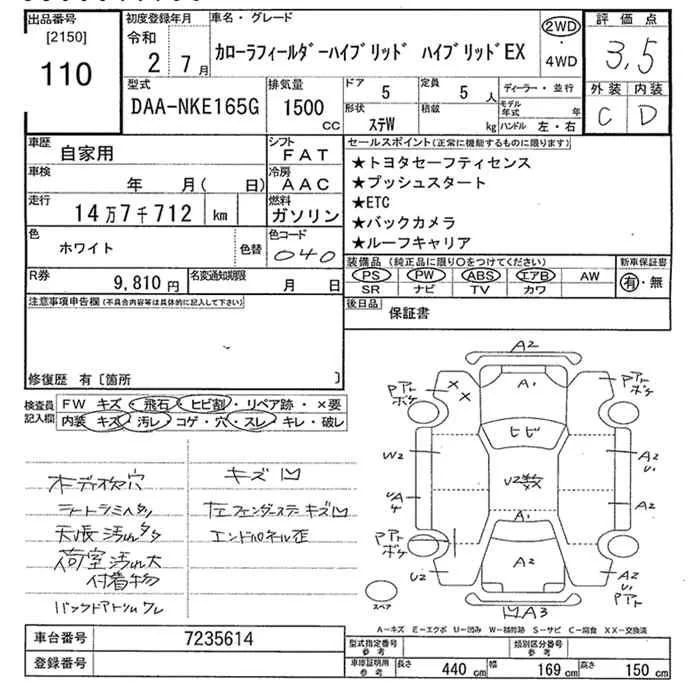 出品番号
[2150]
110
初度登録年月
令和
2 7月
車名・グレード
カローラフィールダーハイブリッド ハイブリッドEX
2WD
・
4WD
評価点
3,5
外装 内装
C D
型式
DAA-NKE165G
排気量
1500
CC
ドア
5
定員
5 人
形状
ステW
積載
kg
ディーラー・並行
モデル
年式 年
ハンドル 左・右
車歴
自家用
シフト
FAT
車検
年 月( 日)
冷房
AAC
走行
14万7千712 km
燃料
ガソリン
色
ホワイト
色替
色コード
040
R券
9,810円
名変通知期限
月 日
セールスポイント(正常に機能するものに限ります)
★トヨタセーフティセンス
★プッシュスタート
★ETC
★バックカメラ
★ルーフキャリア
装備品 (純正品に限り○をつけてください)
PS PW ABS エアB AW
SR ナビ TV カワ
新車保証書
有・無
後日品
保証書
注意事項申告欄(不具合内容等は具体的に記入して下さい)
修復歴 有〔箇所 〕
検査員
記入欄
FW キズ・飛石・ヒビ割・リペア跡・×要
内装 キズ・汚レ・コゲ・穴・スレ・キレ・破レ
ボディ改穴
シートシミヘタリ
天張汚れ多々
荷室汚れ大
付着物
バックドアトリムワレ
キズ凹
左フェンダーステーキズ凹
エンドパネル歪
A2
A1
Pアト
ボケ
Pアト
ボケ
× ×
ヒビ
W2
U2数
A2
U1
A2
Pアト
ボケ
A1
A2
U2
A2
U1
Pアト
凹A3
スペア
A－キズ E－エクボ U－凹み W－補修跡 S－サビ C－腐食 XX－交換済
車台番号
7235614
登録番号
型式指定番号
参考
類別区分番号
参考
車庫証明用
参考
長さ 440 cm 幅 169 cm 高さ 150 cm